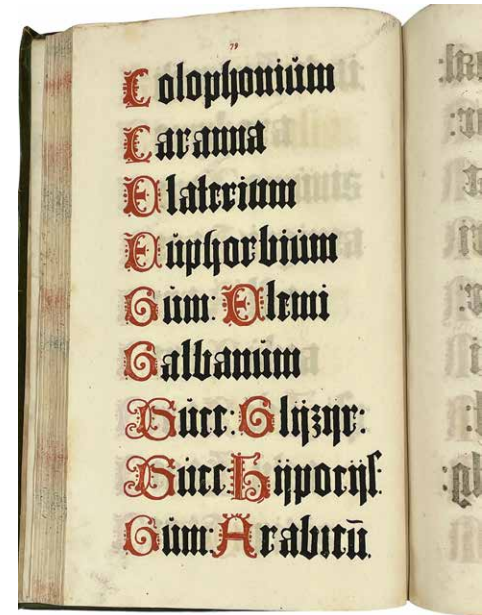 79
Colophoniúm
Caranna
Elaterium
Eúphorbiúm
Gúm: Elemi
Galbanúm
Súcc: Glÿzyr:
Súcc: Hÿpocÿs:
Gúm: Arabicū